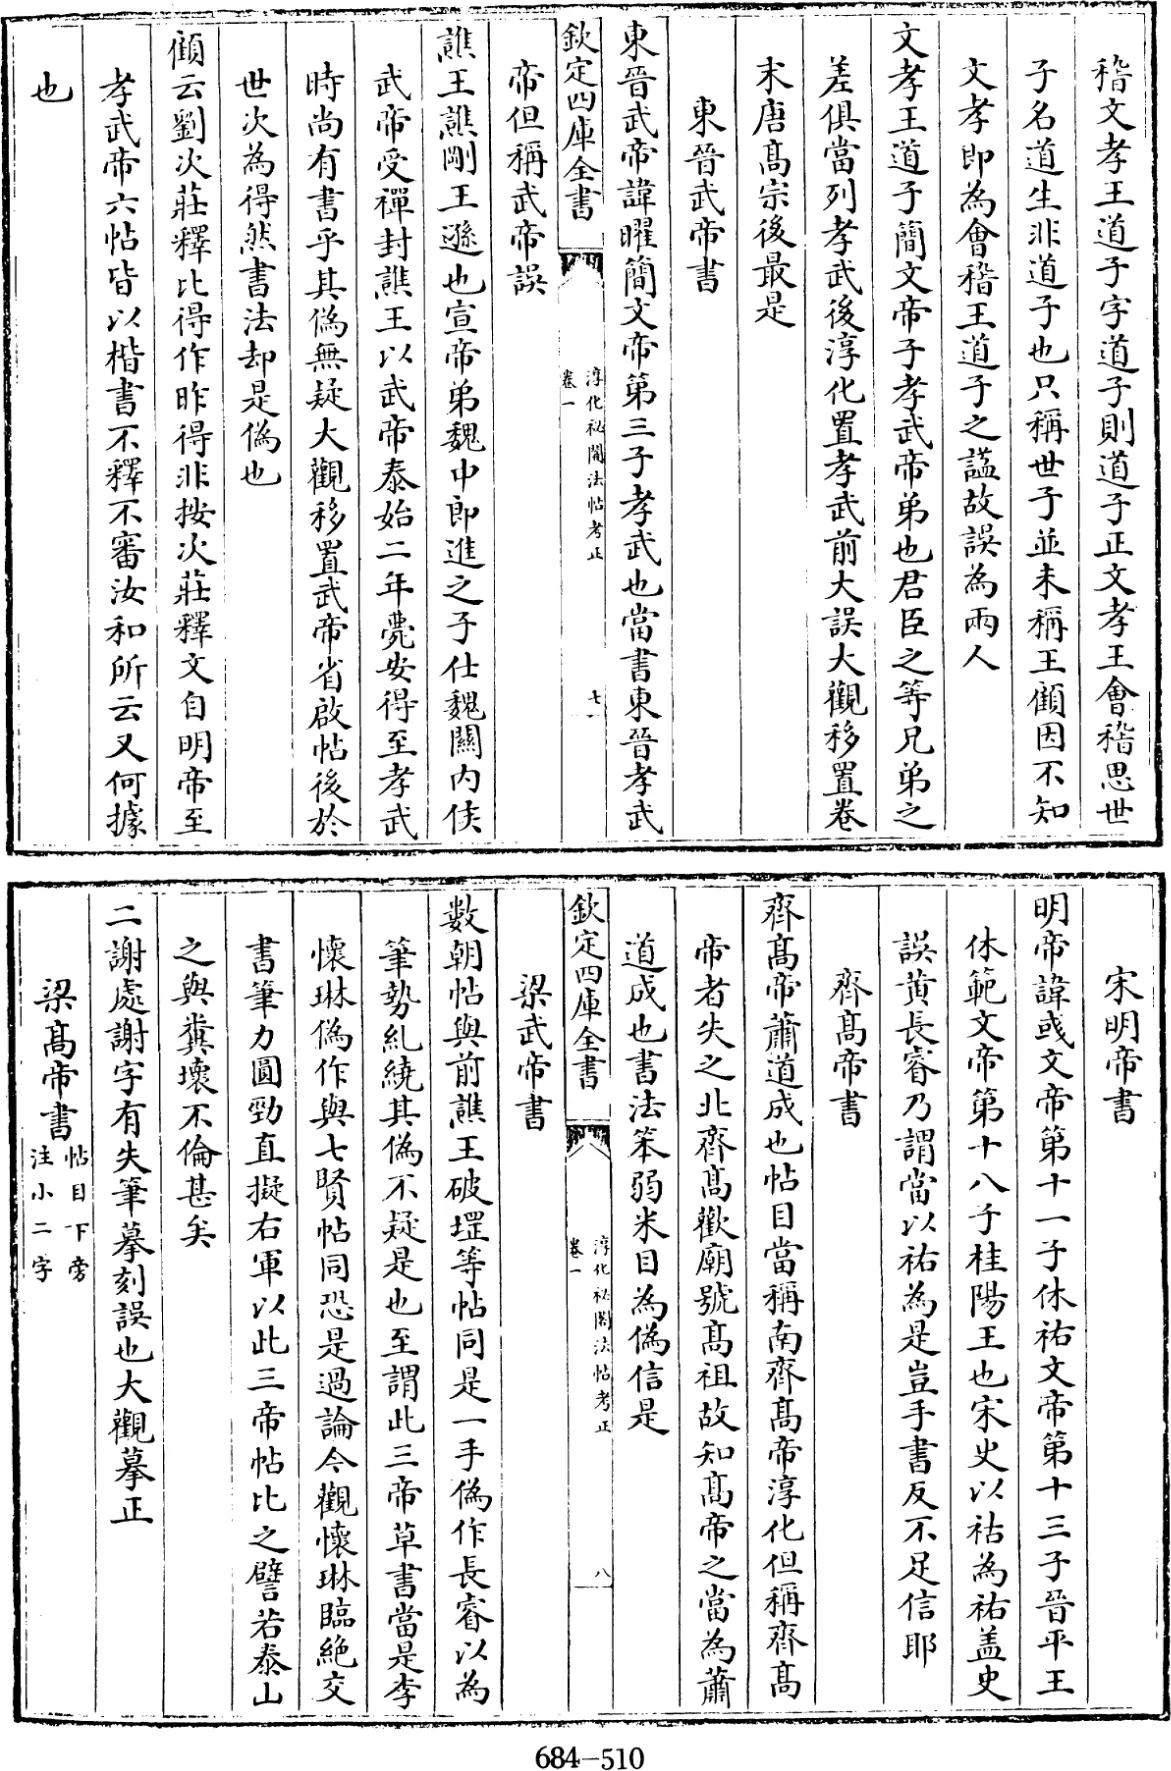 稽文孝王道子字道子則道子正文孝王會稽思世
子名道生非道子也只稱世子並未稱王顧因不知
文孝即為會稽王道子之諡故誤為兩人
文孝王道子簡文帝子孝武帝弟也君臣之等兄弟之
差俱當列孝武後淳化置孝武前大誤大觀移置卷
末唐髙宗後最是
東晉武帝書
東晉武帝諱曜簡文帝第三子孝武也當書東晉孝武
欽定四庫全書
淳化祕閣法帖考正
卷一
七
帝但稱武帝誤
譙王譙剛王遜也宣帝弟魏中郎進之子仕魏關内侯
武帝受禪封譙王以武帝泰始二年薨安得至孝武
時尚有書乎其偽無疑大觀移置武帝省啟帖後於
世次為得然書法却是偽也
顧云劉次莊釋比得作昨得非按次莊釋文自明帝至
孝武帝六帖皆以楷書不釋不審汝和所云又何據
也
宋明帝書
明帝諱彧文帝第十一子休祐文帝第十三子晉平王
休範文帝第十八子桂陽王也宋史以祜為祐盖史
誤黄長睿乃謂當以祐為是豈手書反不足信耶
齊髙帝書
齊髙帝蕭道成也帖目當稱南齊髙帝淳化但稱齊髙
帝者失之北齊髙歡廟號髙祖故知髙帝之當為蕭
道成也書法笨弱米目為偽信是
欽定四庫全書
淳化祕閣法帖考正
卷一
八
梁武帝書
數朝帖與前譙王破堽等帖同是一手偽作長睿以為
筆勢糺繞其偽不疑是也至謂此三帝草書當是李
懷琳偽作與七賢帖同恐是過論今觀懷琳臨絶交
書筆力圓勁直擬右軍以此三帝帖比之譬若泰山
之與糞壤不倫甚矣
二謝處謝字有失筆摹刻誤也大觀摹正
梁髙帝書帖目下旁
注小二字
684-510